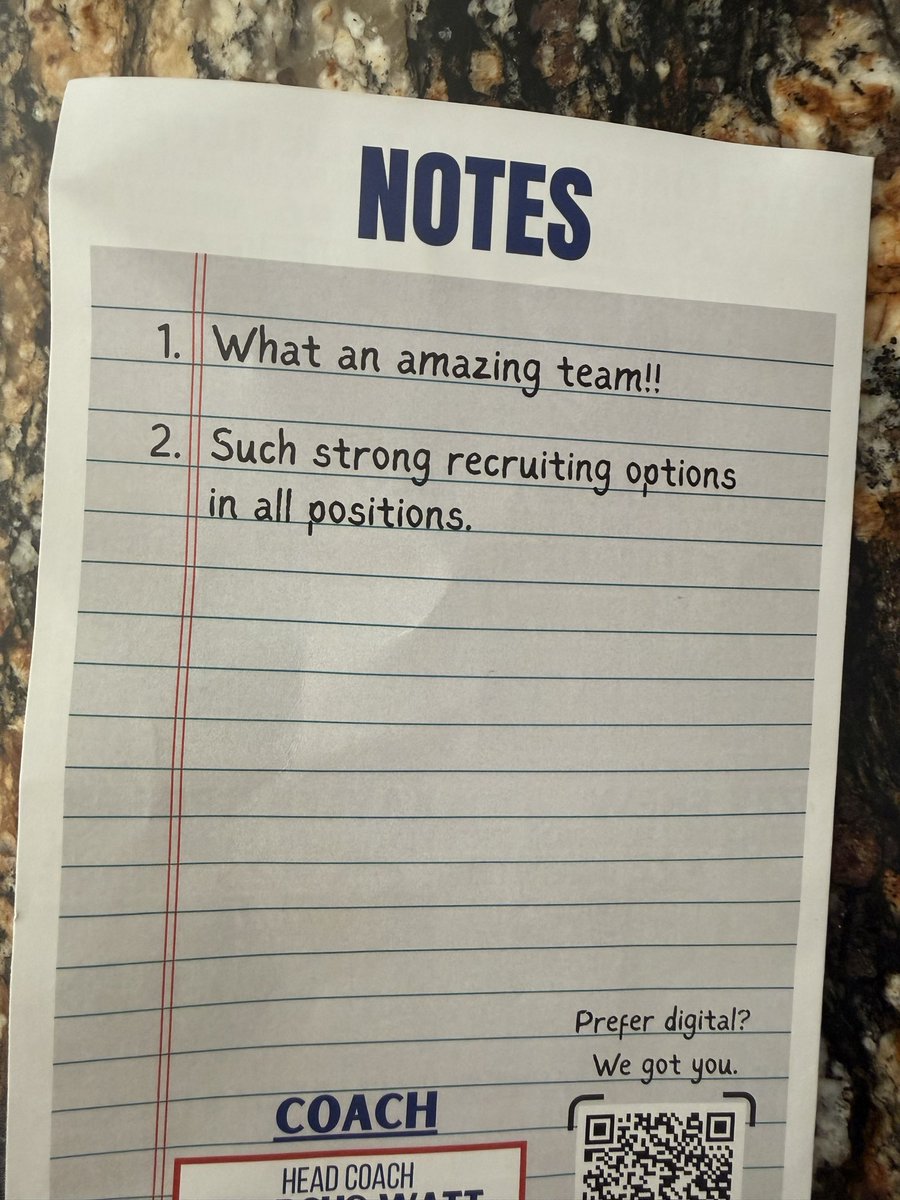 NOTES
1. What an amazing team!!
2. Such strong recruiting options
in all positions.
Prefer digital?
We got you.
COACH
HEAD COACH
WATT